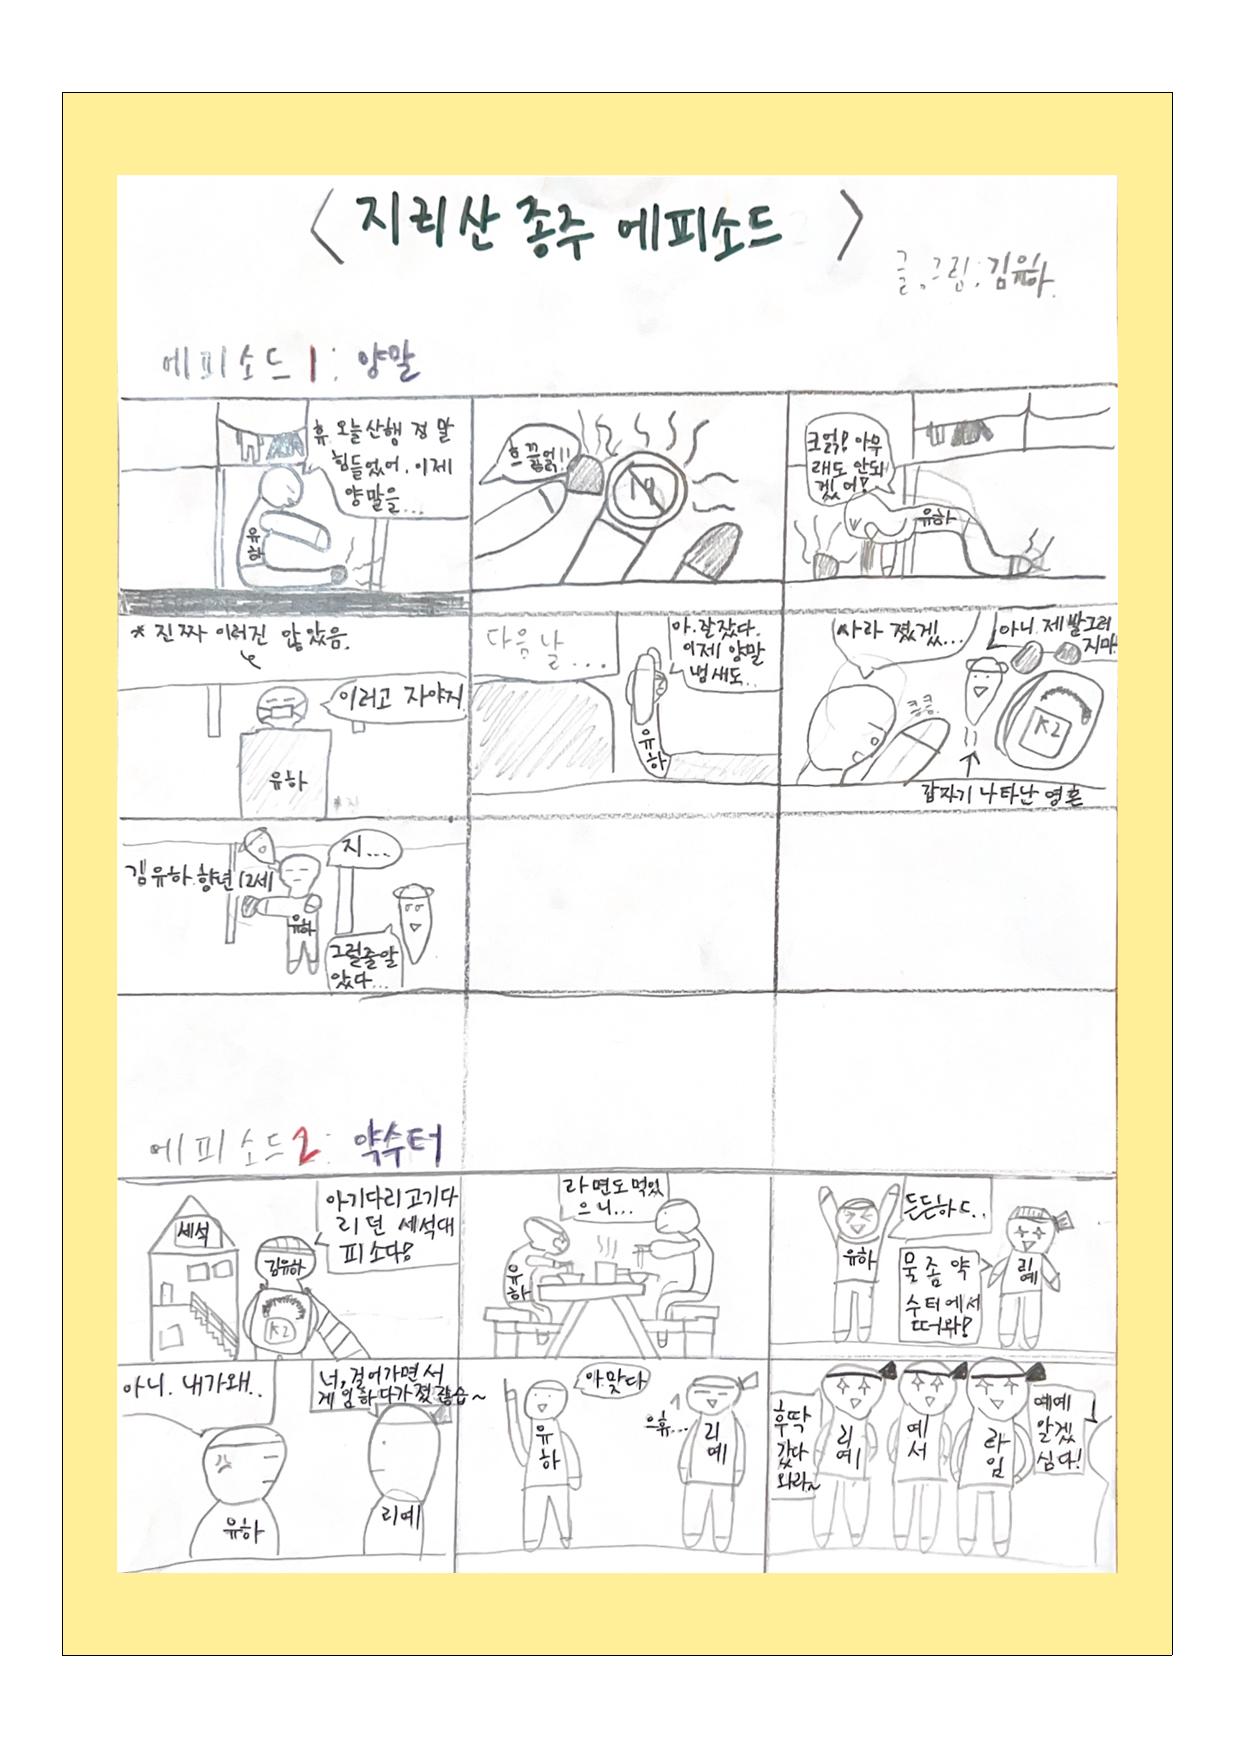 < 지리산 종주 에피소드 >
글,그림: 김유하.
에피소드 1: 양말
휴. 오늘 산행 정말
힘들었어. 이제
양말을...
유
하
으끌얽!!
크얽! 아무
래도 안되
겠어!
유하
* 진짜 이러진 않았음.
이러고 자야지
유하
다음 날...
아. 잘잤다.
이제 양말
냄새도..
유
하
사라 졌겠...
아니. 제발그러
지마
킁킁.
K2
갑자기 나타난 영혼
김유하.향년12세
지...
유하
그럴줄알
았다...
에피소드2: 약수터
세석
아기다리고기다
리던 세석대
피소다!
김유하
K2
라면도먹었
으니...
유
하
든든하드..
유하
물 좀 약
수터에서
떠와!
리
예
아니. 내가왜..
너, 걸어가면서
게임하다가졌잖슴~
유하
리예
아맞다
유
하
으휴...
리
예
후딱
갔다
와라~
리
예
예
서
라
임
예예
알겠
심다!